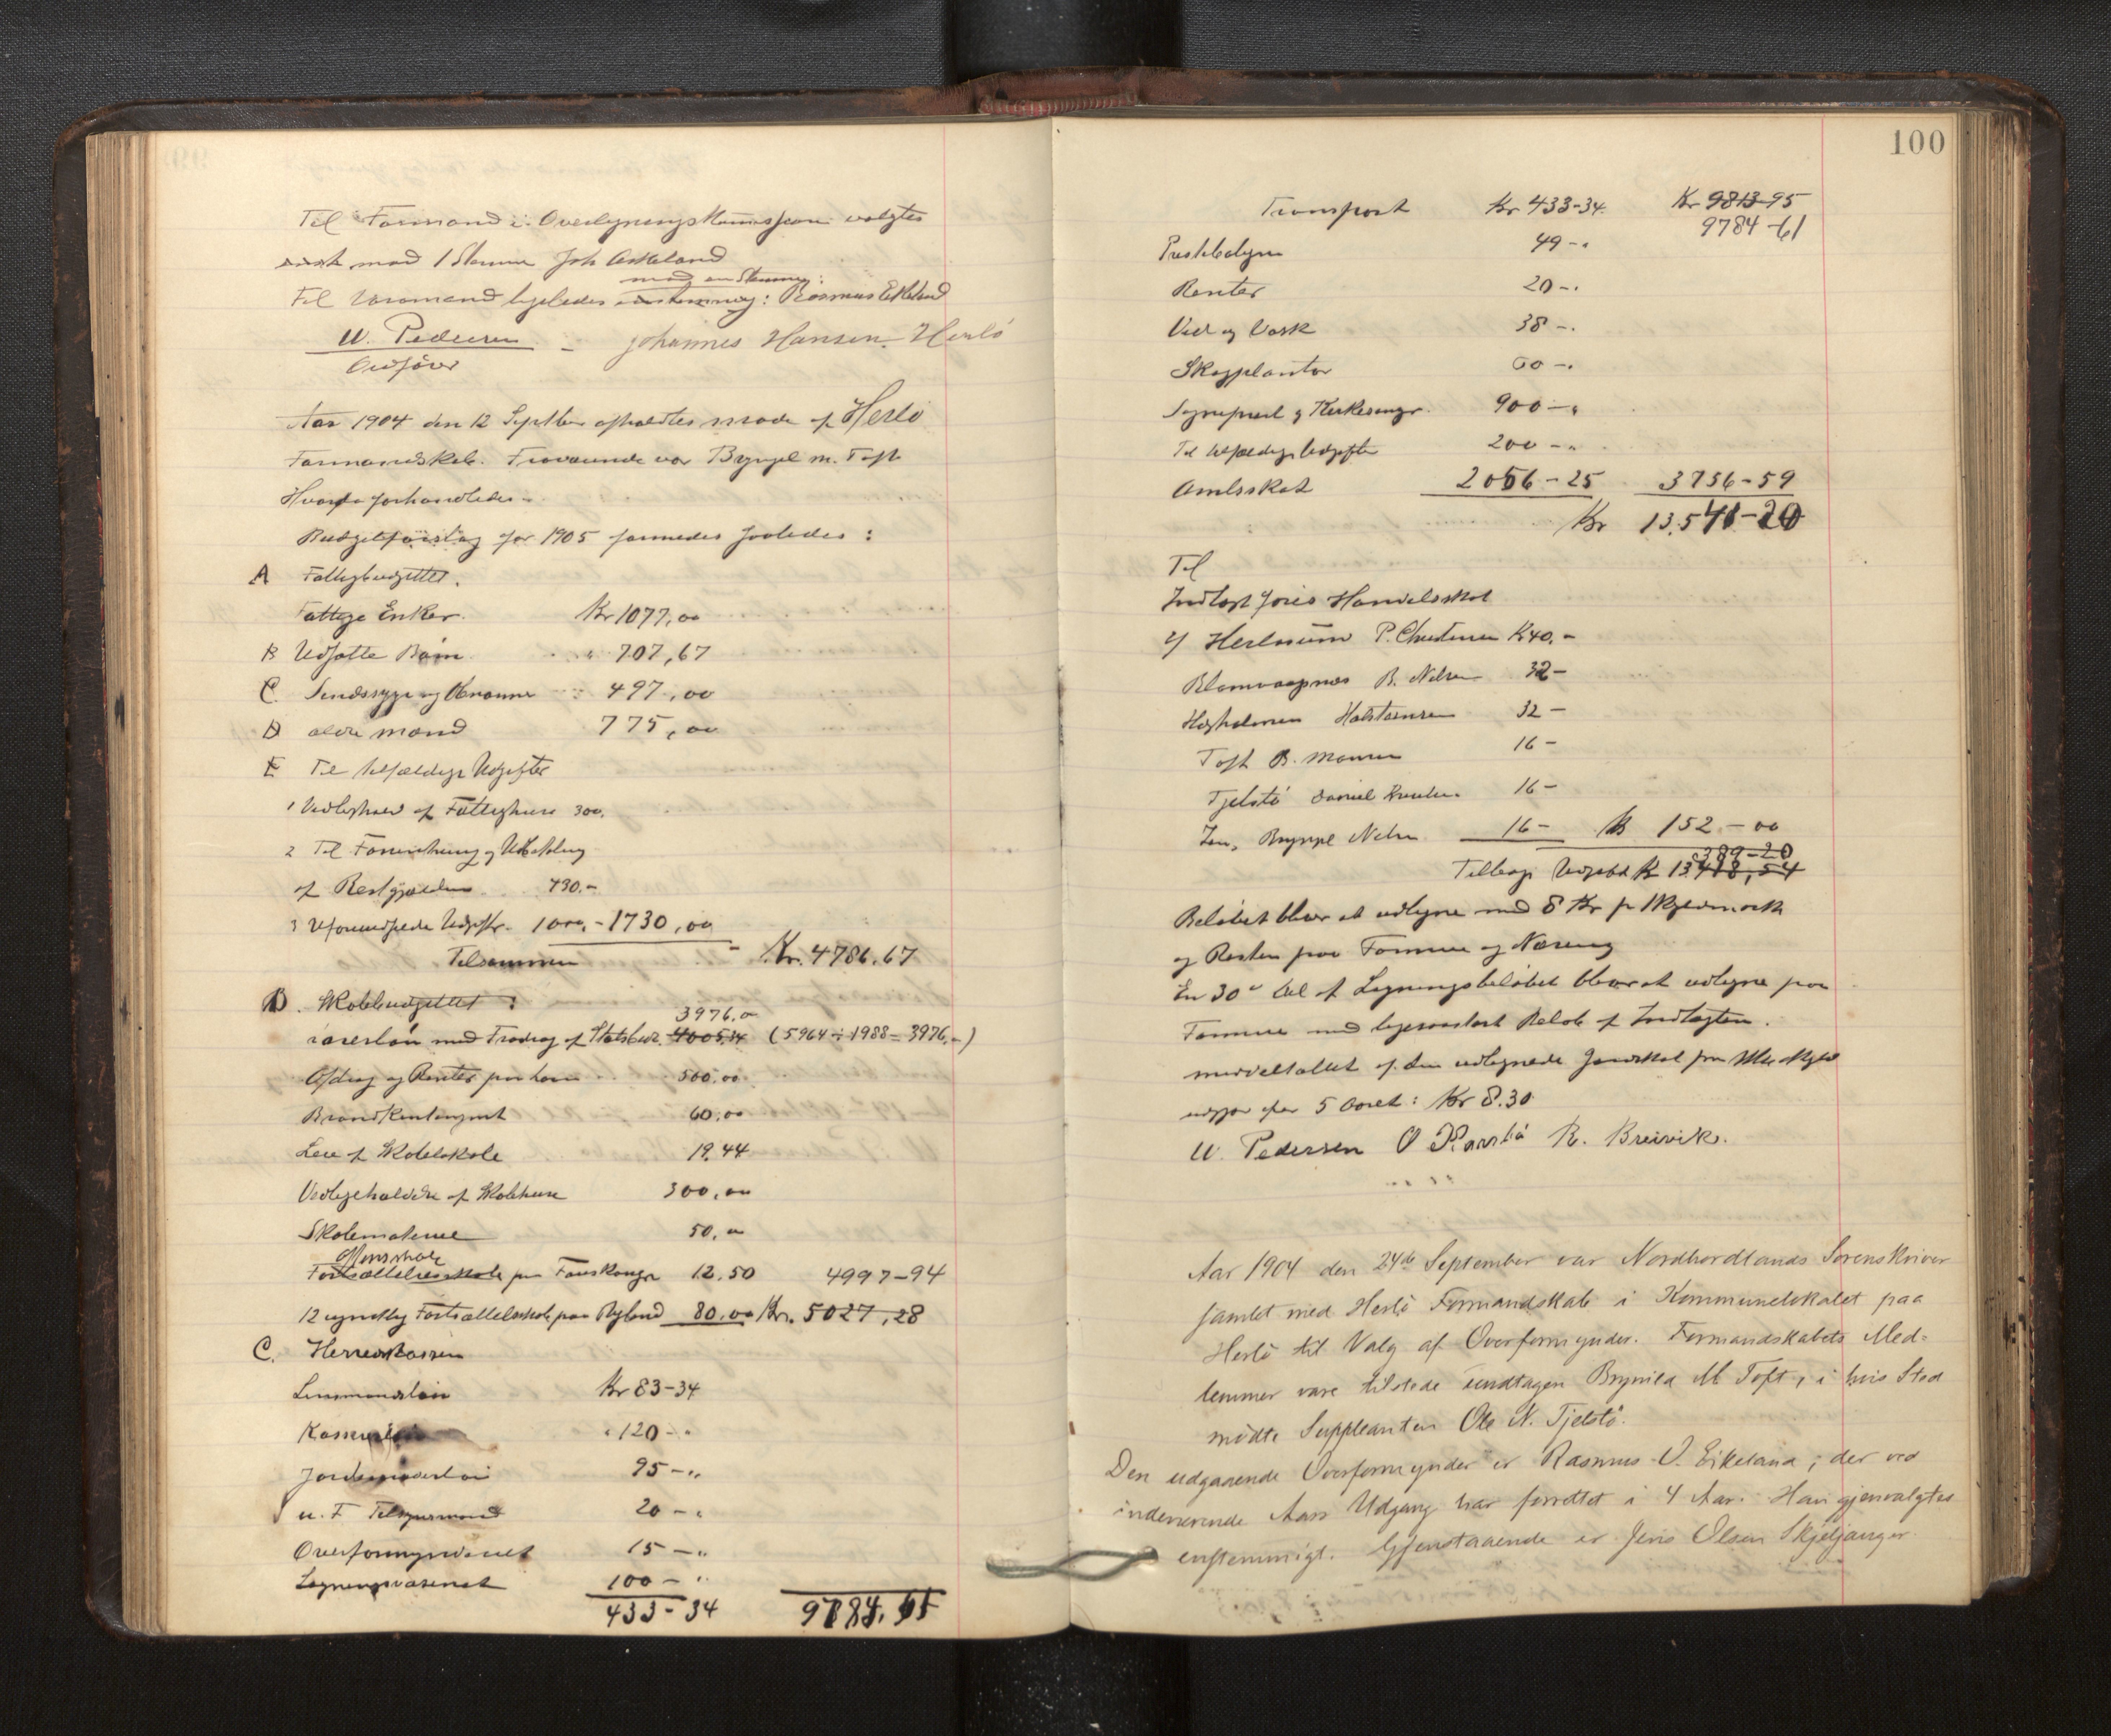 Til Formand i Overligningskommissjonen valgtes
mod 1 Stemme Joh Askeland
mod en Stemme:
Til Varamand ligeledes enstemmig: Rasmus Eikeland
W. Pedersen - Johannes Hansen Herlö
Ordfører
Aar 1904 den 12 Septbr afholdtes møde af Herlö
Formandskab. Fraværende var Brynjel M. Toft
Hvorda forhandledes
Budgetforslag for 1905 saaledes:
A Fattigbudgettet.
Fattige Enker. Kr 1077,00
B Udsatte Børn " 707,67
C. Sindssyge og 497,00
D ældre mænd 775,00
E Til tilfældige Udgifter
1 Vedlighold af Fattighuse 300.
2 Til Forrentning og Udbetaling
af Restgjælden 430.-
3 Uforudseede Udgifter. 1000,- 1730,00
Tilsammen - Kr. 4786.67
B. Skolebudgettet:
3976,00
Lærerløn med Fradrag af Statsbidr. 4005,34 (5964 ÷ 1988 = 3976,-)
Afdrag og Renter paa Laan 500,00
Brandkontingent 60,00
Leie af Skolelokale 19.44
Vedligeholdelse af Skolehuse 300,00
Skolemateriel 50,00
Aftenskole
Fortsættelsesskole paa Fauskanger 12.50 4997-94
12 ugentlig Fortsættelsesskole paa Rylund 80.00 Kr. 5027,28
C. Herredskassen
Lensmandsløn Kr 83-34
Kassererløn " 120-"
Jordemoderløn 95-"
u. F Tilsynsmænd 20-"
Overformynderiet 15-"
Ligningsvæsenet 100-"
433-34 9784,61
100
Transport Kr 433-34 Kr 9813-95
9784-61
Presteboligen 49-"
Renter 20-"
Ved og Vask 38-"
Skogplanter 60-"
Sogneprest og Kirkesanger. 900-"
Til tilfældige Udgifter 200-"
Amtsskat 2056-25 3756-59
Kr 13.541-20
Til
Indtægt føres Handelsskat
af Herløsund P. Christensen Kr 40.-
Blomvaagnes B. Nilsen 32-
Hegholmen Halstensen 32-
Toft B. Monsen 16-
Tjelstö Daniel Knudsen 16-
Brynjel Nilsen 16- Kr 152-00
389-20
Tilbage Udgift Kr 13.418,54
Beløbet blever at udligne med 8 Kr pr Skyldmark
og Resten paa Formue og Næring
En 30te Del af Ligningsbeløbet blever at udligne paa
Formue med ligesaastort Beløb af Indtægten.
middeltallet af den udlignede Jordskat pr Skyld
udgjør for 5 Aaret: Kr 8.30
W. Pedersen O R. Breivik.
Aar 1904 den 24de September var Nordhordlands Sorenskriver
samlet med Herlö Formandskab i Kommunelokalet paa
Herlö til Valg af Overformynder. Formandskabets Med-
lemmer vare tilstede undtagen Brynild M Toft, i hvis Sted
mödte Suppleanten Ole N. Tjelstö.
Den udgaaende Overformynder er Rasmus O. Eikeland; der ved
indeværende Aars Udgang har forrettet i 4 Aar. Han gjenvalgtes
enstemmigt. Gjenstaaende er Jens Olsen Skjeljanger